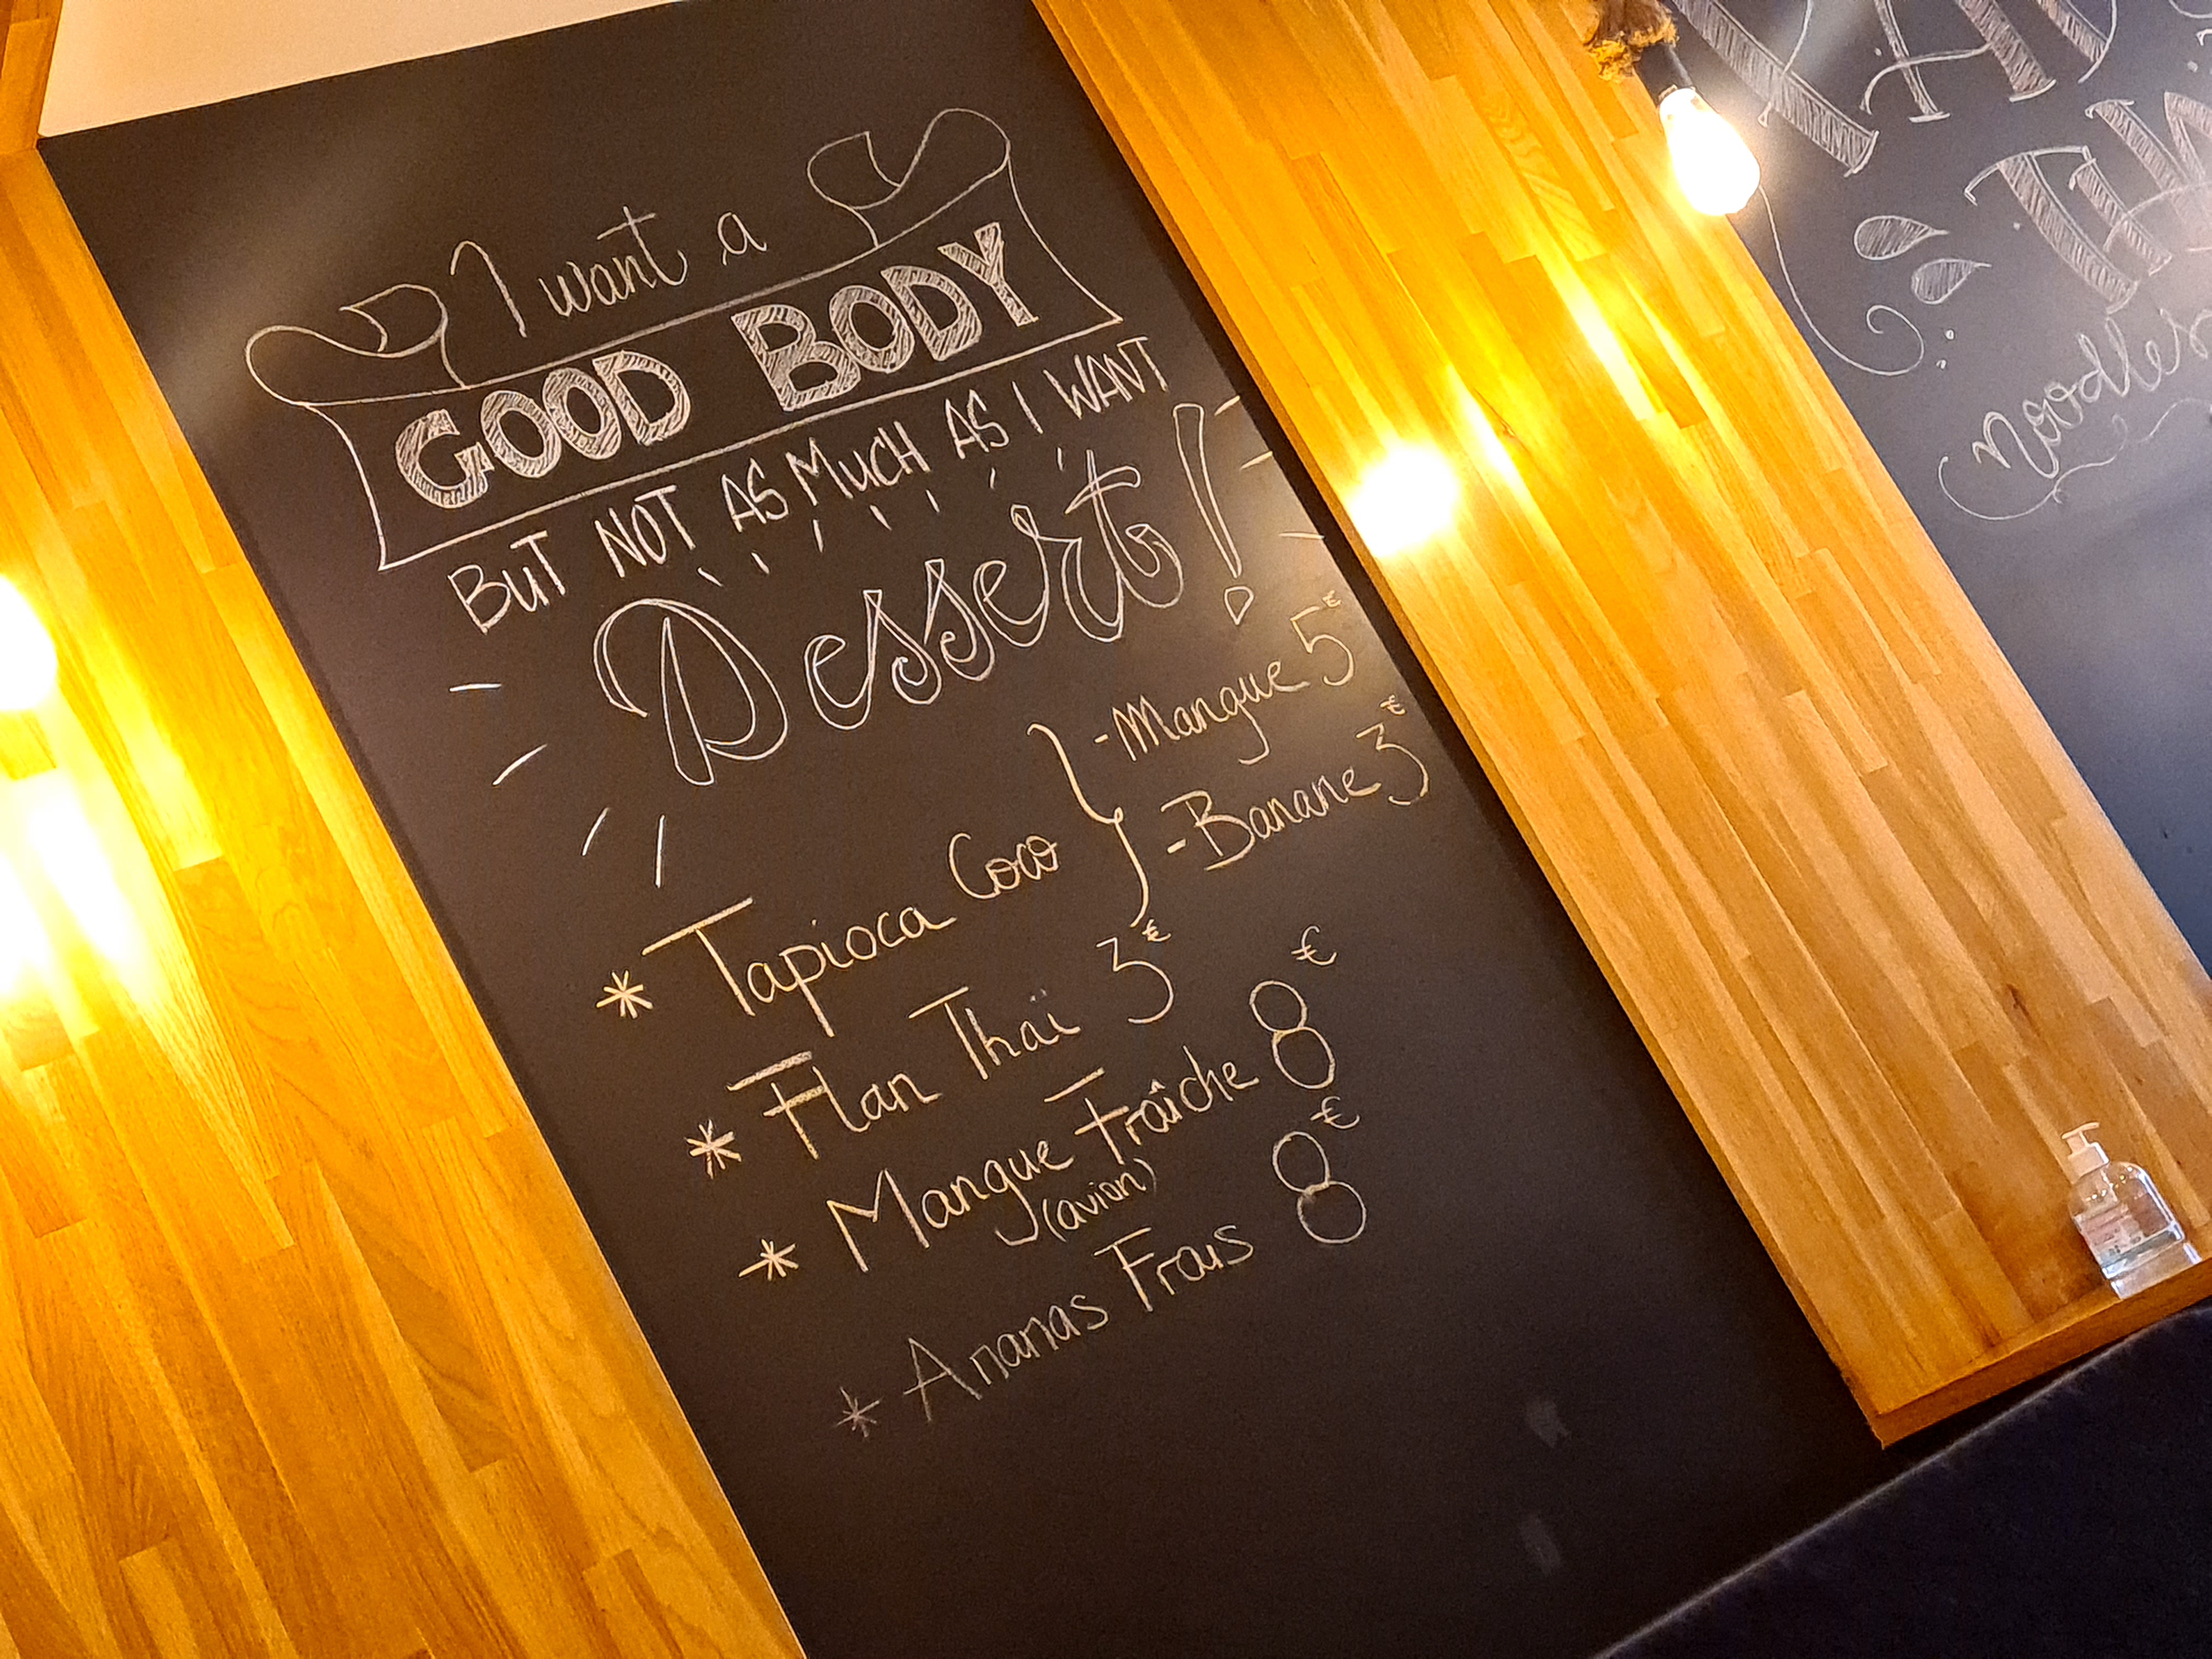 I want a
GOOD BODY
BUT NOT AS MUCH AS I WANT
Dessert!
* Tapioca Coco } - Mangue 5€
- Banane 3€
* Flan Thaï 3€
* Mangue Fraîche 8€
(avion)
* Ananas Frais 8€
noodles